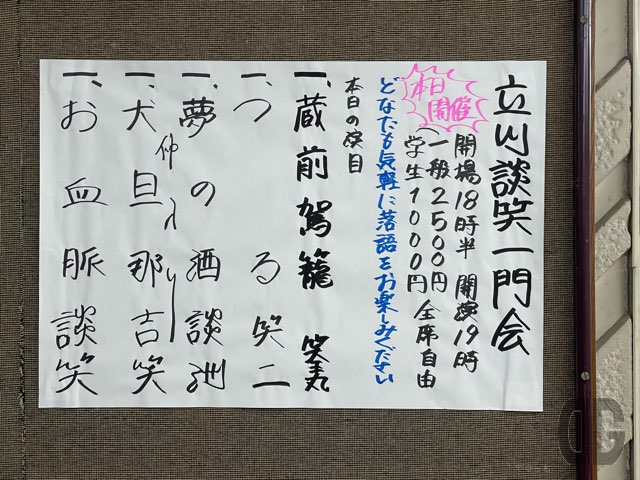 立川談笑一門会
本日
開催
開場18時半 開演19時
(一般2500円 全席自由
学生1000円
どなたも気軽に落語をお楽しみください
本日の演目
一、蔵前駕籠 笑王丸
一、つる 笑二
一、夢の酒 談洲
一、犬旦那 吉笑
仲入り
一、お血脈 談笑